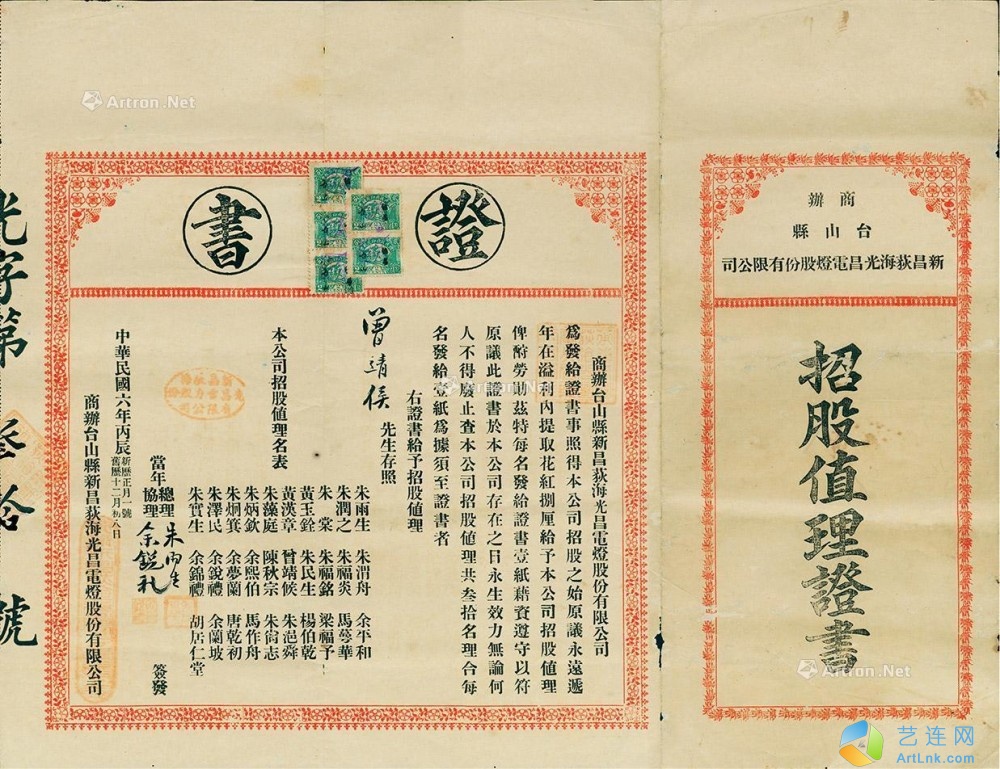 商辦
台山縣
新昌荻海光昌電燈股份有限公司
招股值理證書
證書
商辦台山縣新昌荻海光昌電燈股份有限公司
為發給證書事照得本公司招股之始原議永遠遞
年在溢利內提取花紅捌厘給予本公司招股値理
俾酧勞勩茲特每名發給證書壹紙藉資遵守以符
原議此證書於本公司存在之日永生效力無論何
人不得廢止查本公司招股値理共叁拾名理合每
名發給壹紙為據須至證書者
右證書給予招股値理
曾靖侯 先生存照
本公司招股値理名表
朱雨生 朱渭舟 余平和
朱潤之 朱福炎 馬萼華
朱棠 朱福銘 梁福予
黃玉銓 朱民生 楊伯乾
黃漢章 曾靖候 朱浥舜
朱藻庭 陳秋宗 朱尙志
朱炳欽 余熙伯 馬作舟
朱炯箕 余夢蘭 唐乾初
朱澤民 余銳禮 余蘭坡
朱實生 余錦禮 胡居仁堂
當年總理 朱雨生
協理 余銳礼
簽發
中華民國六年丙辰新歷正月一號舊歷十二月初八日
商辦台山縣新昌荻海光昌電燈股份有限公司
光字第叁拾號
Artron.Net
Artron.Net
Artron.Net
艺连网
ArtLnk.com